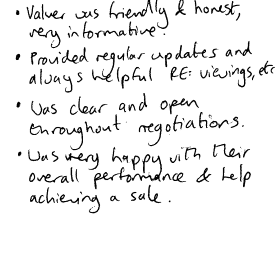 • Valuer was friendly & honest,
very informative.
• Provided regular updates and
always helpful RE: viewings, etc
• Was clear and open
throughout negotiations.
• Was very happy with their
overall performance & help
achieving a sale.